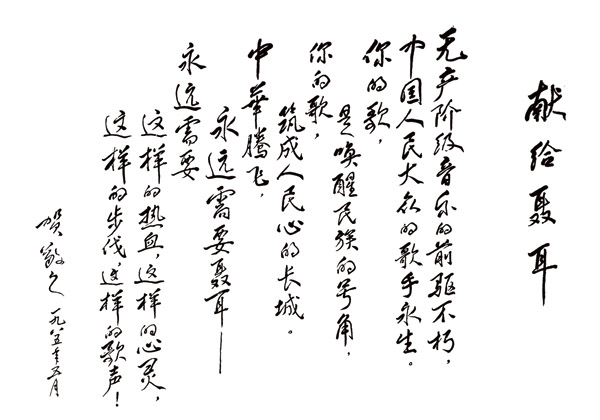 献给聂耳
无产阶级音乐的前驱不朽，
中国人民大众的歌手永生。
你的歌，
是唤醒民族的号角，
你的歌，
筑成人民心的长城。
中華腾飞，
永远需要聂耳——
永远需要
这样的热血，这样的心灵，
这样的步伐，这样的歌声！
贺敬之 一九八五年五月